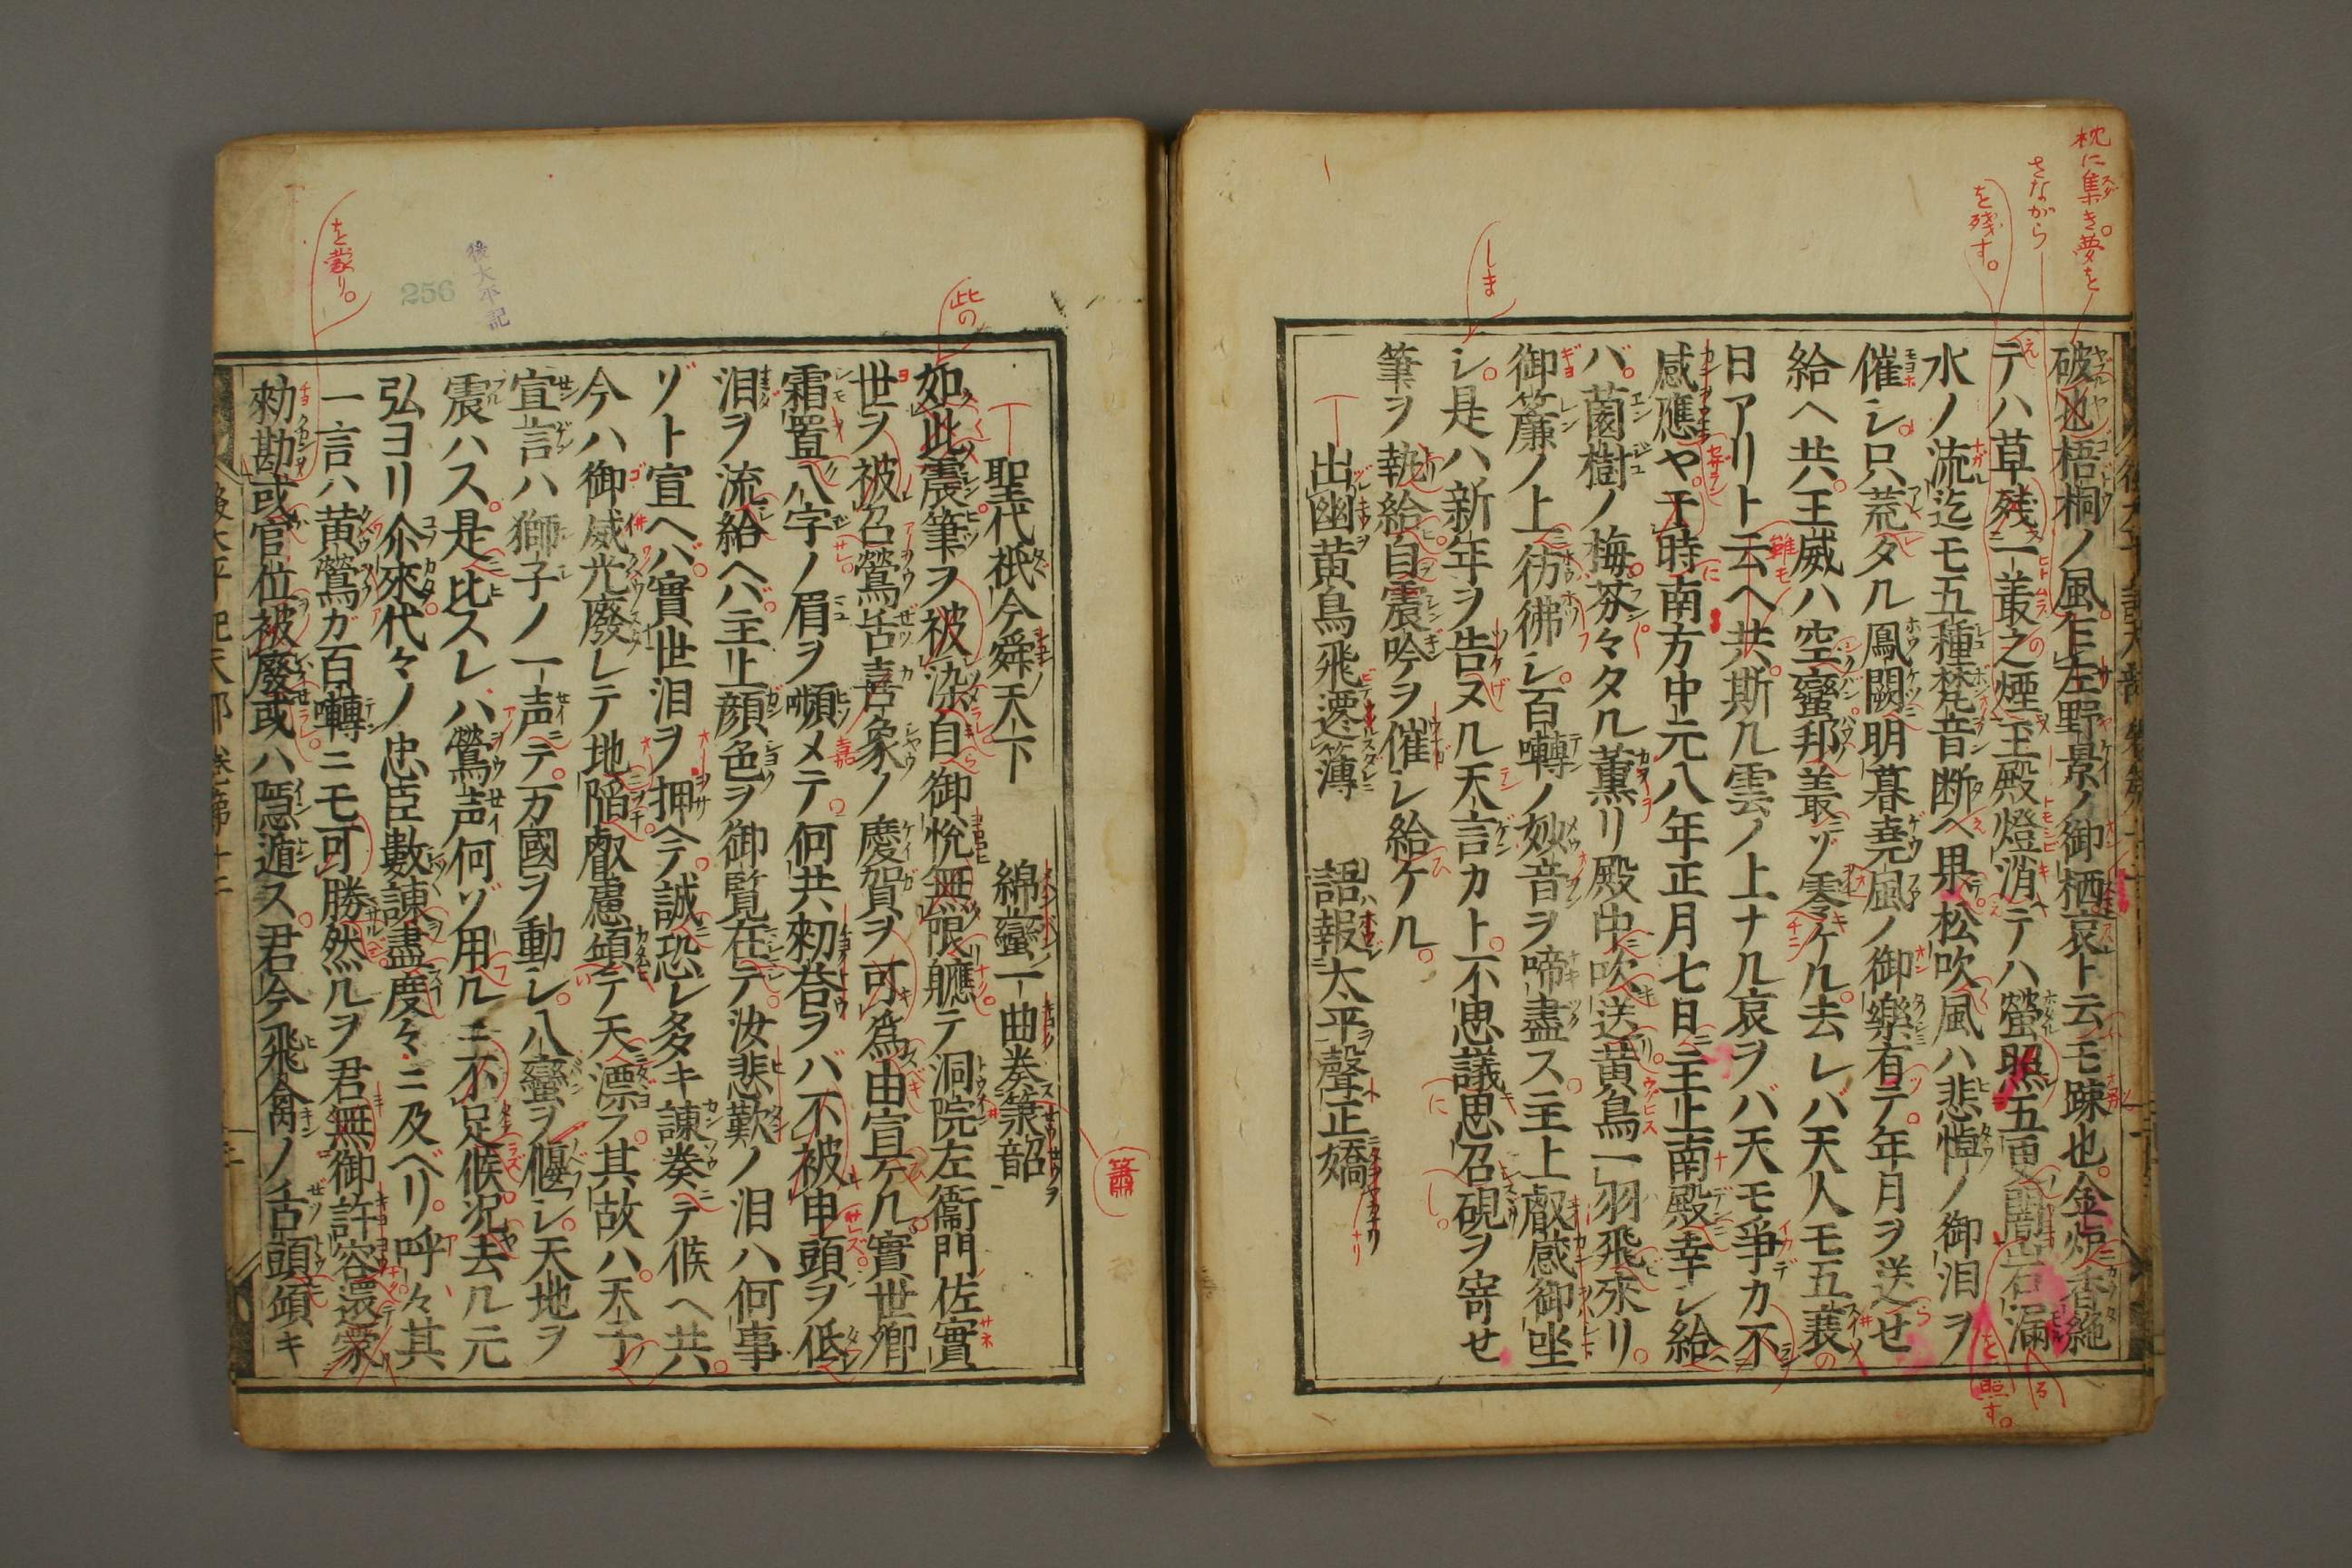 破也梧桐ノ風乍左野景ノ御栖哀ト云モ疎也金炉香絶
テハ草残一叢之煙玉殿燈消テハ螢照五更闇岩漏
水ノ流迄モ五種梵音断ヘ果松吹風ハ悲悼ノ御泪ヲ
催シ只荒タル鳳闕明暮堯風ノ御樂有テ年月ヲ送せ
給ヘ共王威ハ空蠻邦叢ニゾ零ケル去レバ天人モ五衰
日アリト云ヘ共斯ル雲ノ上ナル哀ヲバ天モ爭カ不
感應や于時南方中元八年正月七日主上南殿幸シ給
バ薗樹ノ梅芬々タル薫リ殿中吹送黄鳥一羽飛來リ
御簾ノ上彷彿シ百囀ノ妙音ヲ啼盡ス主上叡感御坐
シ是ハ新年ヲ告ヌル天言カト不思議思召硯ヲ寄せ
筆ヲ執給自震吟ヲ催シ給ケル
出幽黄鳥飛遷簿　語報太平聲正嬌
聖代祇今舜天下　綿蠻一曲奏簫韶
如此震筆ヲ被染自御悅無限軈テ洞院左衞門佐實
世ヲ被召鶯舌喜象ノ慶賀ヲ可為由宣ケル實世卿
霜置八字ノ眉ヲ顰メテ何共勅荅ヲバ不被申頭ヲ低
泪ヲ流給ヘバ主上顔色ヲ御覧在テ汝悲歎ノ泪ハ何事
ゾト宣ヘバ實世泪ヲ押ヘテ誠恐レ多キ諫奏テ候ヘ共
今ハ御威光廢レテ地陥叡慮傾テ天漂フ其故ハ天子
宣言ハ獅子ノ一声テ万國ヲ動シ八蠻ヲ偃シ天地ヲ
震ハス是比スレバ鶯声何ゾ用ルニ不足候況去ル元
弘ヨリ尒來代々ノ忠臣數諫盡度々ニ及ベリ呼々其
一言ハ黄鶯ガ百囀ニモ可勝然ルヲ君無御許容還蒙
勅勘或官位被廢或ハ隠遁ス君今飛禽ノ舌頭傾キ
枕に集き夢を
さながら
を残す。
しま
を照す。
此の
簫
を蒙り。
後太平記
256